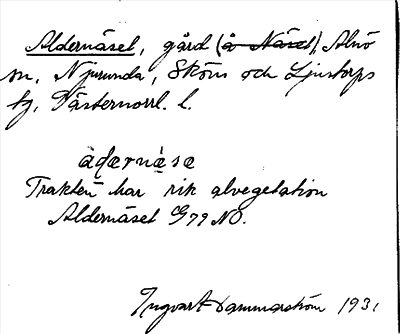 Aldernäset, gård (å Näset), Alnö
sn, Njurunda, Sköns och Ljustorps
tg, Västernorrl. l.
àdærnæ̀sə
Trakten har rik alvegetation
Aldernäset G77 NO.
Ingvar Hammarström 1931